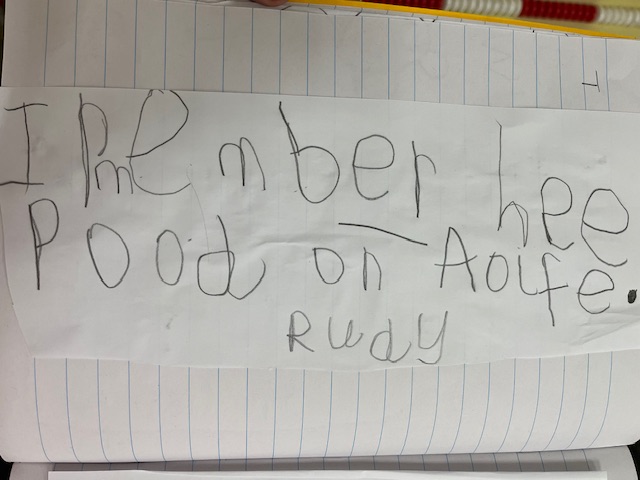 I Rmember hee
Pood on Aoife.
Rudy